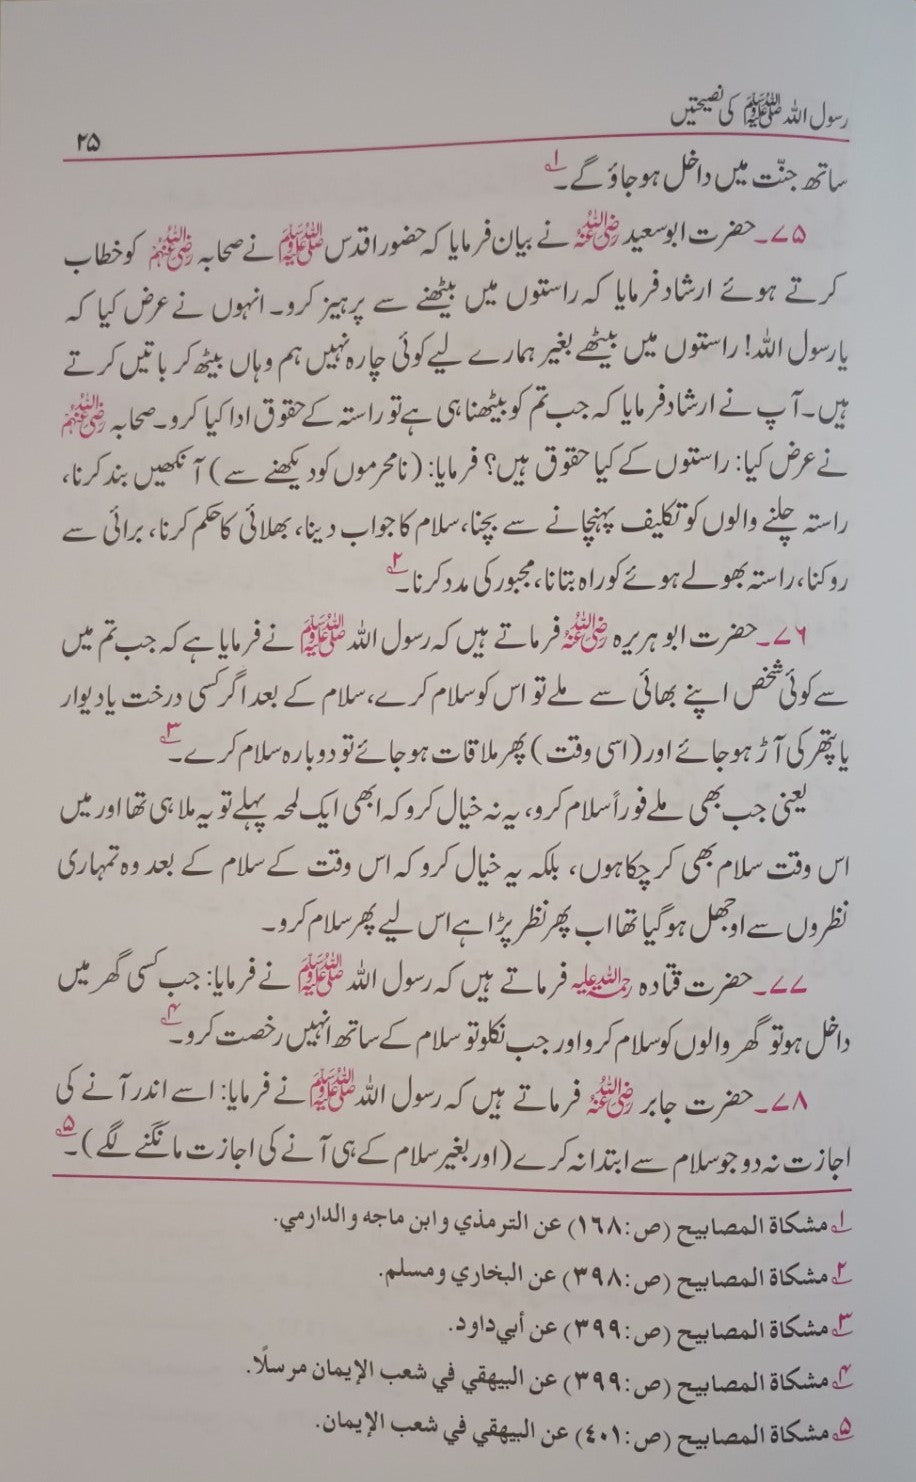 رسول اللہ ﷺ کی نصیحتیں
۲۵
ساتھ جنّت میں داخل ہوجاؤ گے۔ ۱؎
۷۵۔ حضرت ابوسعید رضی اللہ عنہ نے بیان فرمایا کہ حضور اقدس ﷺ نے صحابہ رضی اللہ عنہم کو خطاب
کرتے ہوئے ارشاد فرمایا کہ راستوں میں بیٹھنے سے پرہیز کرو۔ انہوں نے عرض کیا کہ
یا رسول اللہ! راستوں میں بیٹھے بغیر ہمارے لیے کوئی چارہ نہیں ہم وہاں بیٹھ کر باتیں کرتے
ہیں۔ آپ نے ارشاد فرمایا کہ جب تم کو بیٹھنا ہی ہے تو راستہ کے حقوق ادا کیا کرو۔ صحابہ رضی اللہ عنہم
نے عرض کیا: راستوں کے کیا حقوق ہیں؟ فرمایا: (نامحرموں کو دیکھنے سے) آنکھیں بند کرنا،
راستہ چلنے والوں کو تکلیف پہنچانے سے بچنا، سلام کا جواب دینا، بھلائی کا حکم کرنا، برائی سے
روکنا، راستہ بھولے ہوئے کو راہ بتانا، مجبور کی مدد کرنا۔ ۲؎
۷۶۔ حضرت ابوہریرہ رضی اللہ عنہ فرماتے ہیں کہ رسول اللہ ﷺ نے فرمایا ہے کہ جب تم میں
سے کوئی شخص اپنے بھائی سے ملے تو اس کو سلام کرے، سلام کے بعد اگر کسی درخت یا دیوار
یا پتھر کی آڑ ہوجائے اور (اسی وقت) پھر ملاقات ہوجائے تو دوبارہ سلام کرے۔ ۳؎
یعنی جب بھی ملے فوراً سلام کرو، یہ نہ خیال کرو کہ ابھی ایک لمحہ پہلے تو یہ ملا ہی تھا اور میں
اس وقت سلام بھی کر چکا ہوں، بلکہ یہ خیال کرو کہ اس وقت کے سلام کے بعد وہ تمہاری
نظروں سے اوجھل ہوگیا تھا اب پھر نظر پڑا ہے اس لیے پھر سلام کرو۔
۷۷۔ حضرت قتادہ رحمۃ اللہ علیہ فرماتے ہیں کہ رسول اللہ ﷺ نے فرمایا: جب کسی گھر میں
داخل ہو تو گھر والوں کو سلام کرو اور جب نکلو تو سلام کے ساتھ انہیں رخصت کرو۔ ۴؎
۷۸۔ حضرت جابر رضی اللہ عنہ فرماتے ہیں کہ رسول اللہ ﷺ نے فرمایا: اسے اندر آنے کی
اجازت نہ دو جو سلام سے ابتدا نہ کرے (اور بغیر سلام کے ہی آنے کی اجازت مانگنے لگے)۔ ۵؎
۱؎ مشكاة المصابيح (ص: ١٦٨) عن الترمذي وابن ماجه والدارمي.
۲؎ مشكاة المصابيح (ص: ٣٩٨) عن البخاري ومسلم.
۳؎ مشكاة المصابيح (ص: ٣٩٩) عن أبي داود.
۴؎ مشكاة المصابيح (ص: ٣٩٩) عن البيهقي في شعب الإيمان مرسلًا.
۵؎ مشكاة المصابيح (ص: ٤٠١) عن البيهقي في شعب الإيمان.